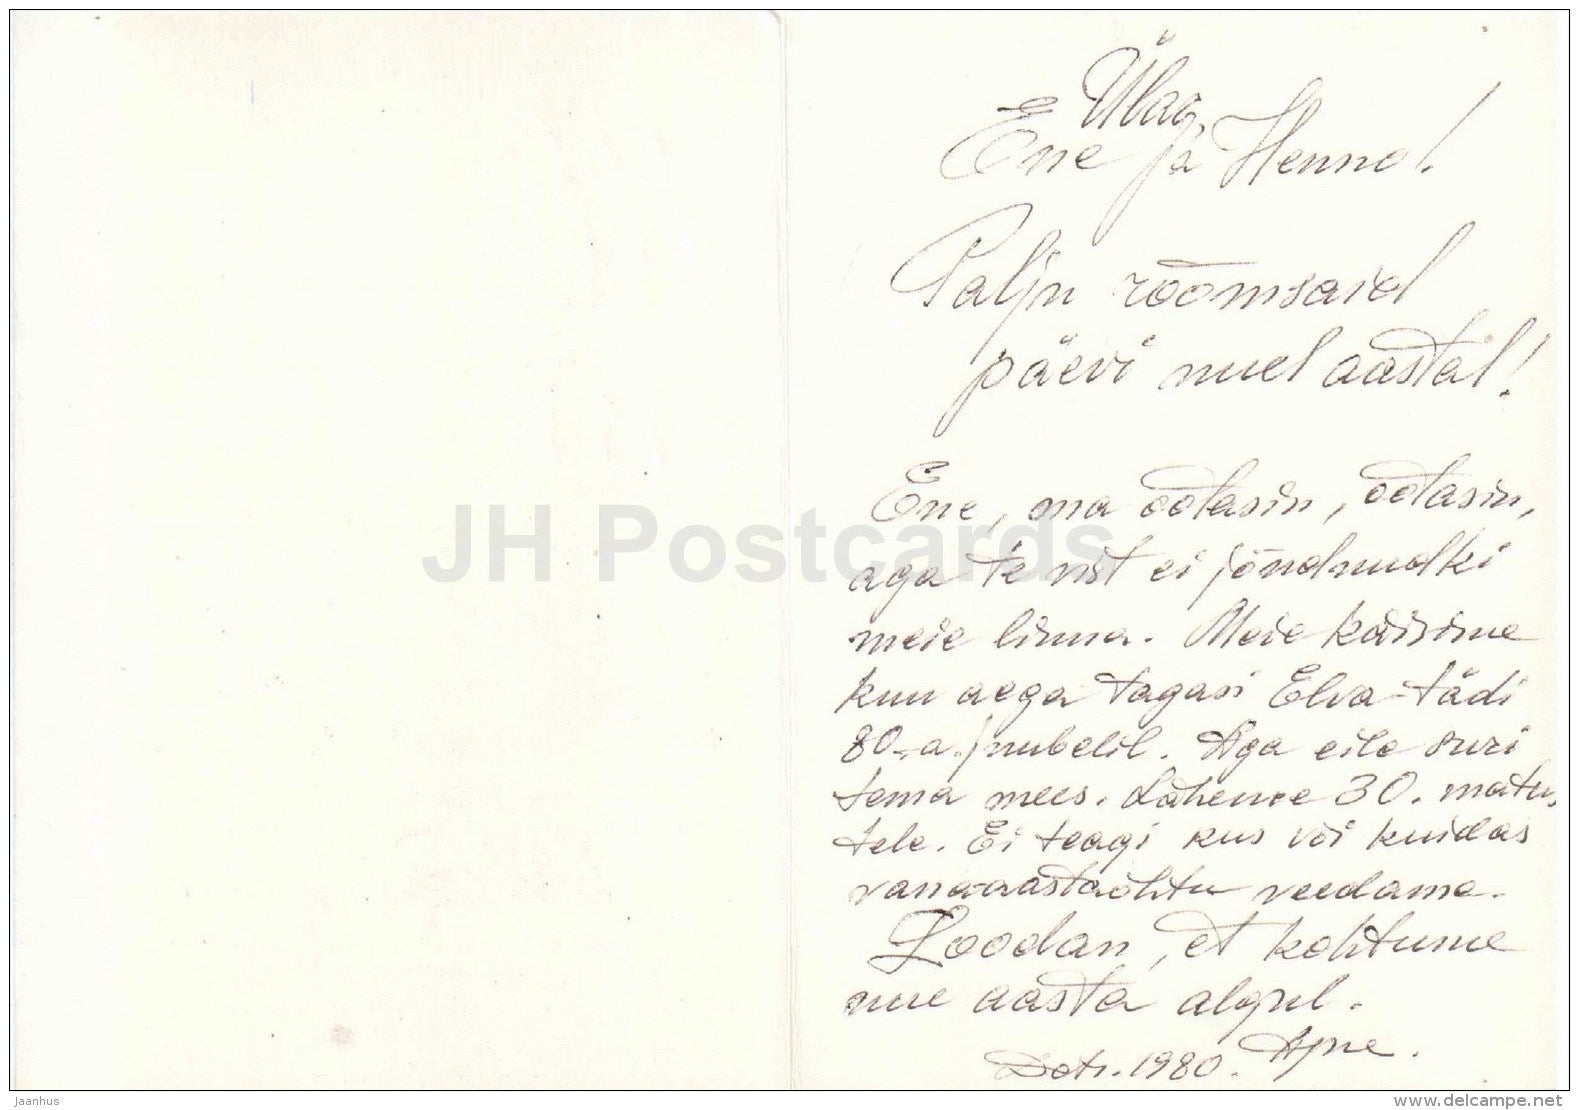 Ülar,
Ene ja Henno!
Palju rõõmsaid
päevi uuel aastal!
Ene, ma ootasin, ootasin,
aga te vist ei jõudnudki
meie linna. Meie käisime
kuu aega tagasi Elva-tädi
80-a. juubelil. Aga eile suri
tema mees. Läheme 30. matus
tele. Ei teagi kus või kuidas
vana-aastaõhtu veedame.
Loodan, et kohtume
uue aasta algul.
Dets. 1980.
JH Postcards
Jaanhus
www.delcampe.net